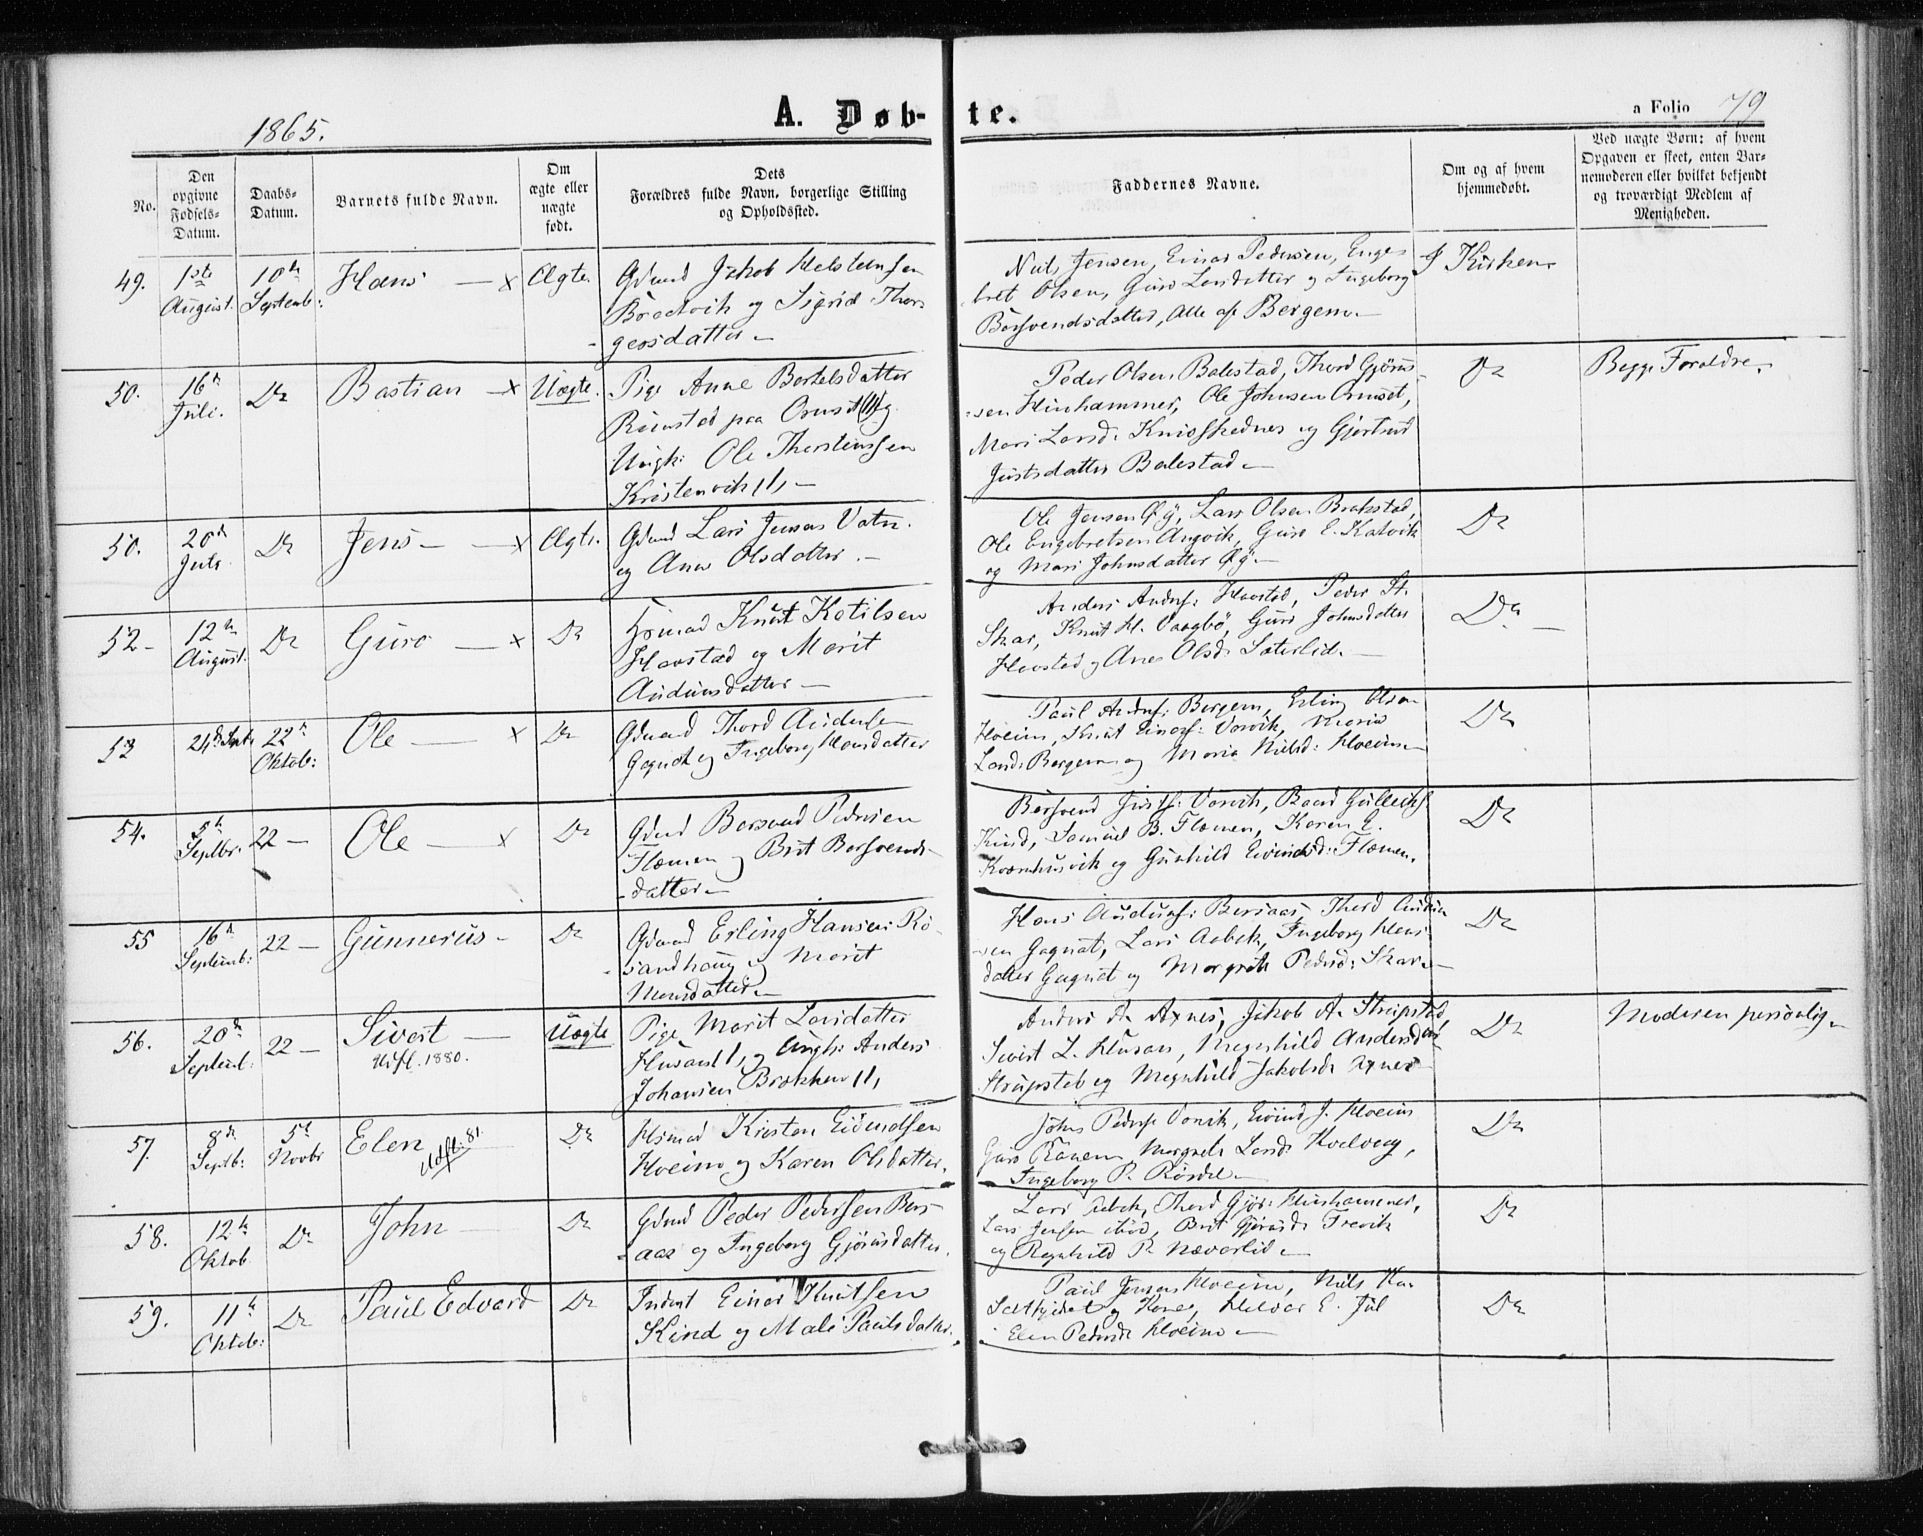 1865.
A. Døb-te.
a Folio 79
No.
Den opgivne Fødsels-Datum.
Daabs-Datum.
Barnets fulde Navn.
Om ægte eller uægte født.
Dets Forældres fulde Navn, borgerlige Stilling og Opholdssted.
Faddernes Navne.
Om og af hvem hjemmedøbt.
Ved uægte Børn: af hvem Opgaven er skeet, enten Barnemoderen eller hvilket bekjendt og troværdigt Medlem af Menigheden.
49. 1ste August. 10de Septemb: Hans — x Ægte.
Gdmd Jakob Helsteinsen
Brødvik og Sigrid Thor-
gersdatter —
Nils Jensen, Einar Pedersen, Enge-
bret Olsen, Guro Larsdatter og Ingeborg
Børsvendsdatter, Alle af Bergem.—
I Kirken.
50. 16de Juli. Do Bastian — x Uægte.
Pige Anne Bertelsdatter
paa
Ungk: Ole Thorstensen
Kristenvik
Peder Olsen Balestad, Thord Gjørus-
sen Hinhammer, Ole Johnsen
Mari Larsd: og Gjertrud
Justsdatter Balestad —
Do
Begge Forældre.
50. 20de Juli Do Jens — x Ægte.
Gdmd Lars Jensen Vatn.
og Ane Olsdatter. —
Ole Jensen Øy, Lars Olsen
Ole Engebretsen Angvik, Guro E.
og Mari Johnsdatter Øy. —
Do
52 — 12te August. Do Guro — x Do
Hsmd Knut Ketilsen
Havstad og Marit
Audunsdatter —
Anders Andrs: Havstad, Peder
Skar, Knut H. Vaagbø, Guro Johnsdatter
Havstad og Ane Olsd:
Do —
53 24de Sept 22de Oktob: Ole — x Do
Gdmd Thord Audunsen
Gagnat og Ingeborg Hansdatter
Paul Andrs: Bergem, Erling Olsen
Hoeim, Knut Einars: Vorvik, Maria
Larsd: Bergem og Maria Nielsd: Hoeim —
Do
54. 5te Septbr: 22 — Ole — x Do
Gdmd Børsvend Pedersen
Flemen og Brit Børsvends-
datter —
Børsvend Justs: Vorvik, Baard Gulleiks:
Kind, Samuel B. Flemen, Karen E.
Kvernhusvik og Gunhild Eivindsd: Flemen.
Do
55 16de Septemb: 22 — Gunnerus — Do
Gdmd Erling Hansen Rø-
sandhaug og Marit
Monsdatter —
Hans Auduns: Bersaas, Thord Audun-
sen Gagnat, Lars Aabek, Ingeborg Hans-
datter Gagnat og Margrete Pedersd: Skar —
Do
56. 20de Septemb: 22 — Sivert — Uægte
Utfl. 1880.
Pige Marit Larsdatter
og Ungk: Anders
Johansen
Anders A. Axnes, Jakob A. Strupstad
Sivert L. Magnhild Andersdat
Strupstad og Magnhild Jakobsd: Axnes
Do
Moderen personlig —
57. 8de Septb: 5te Novbr Elen Udfl. 81. Do
Hsmd Kristen Eidmundsen
Hoeim og Karen Olsdatter.
John Peders: Vorvik, Eivind J. Hoeim
Guro Ranem, Margrete Larsd: Hvalveg,
Ingeborg P. —
Do
58. 12te Oktob Do John Do
Gdmd Peder Pedersen Bers-
aas og Ingeborg Gjørusdatter.
Lars Aabek, Thord Gjør: Hinhammer,
Lars Jensen Brit Gjørusd: Trevik
og Ragnhild P. Neverlid —
Do
59. 11te Oktob: Do Paul Edvard Do
Inderst Einar Knutsen
Kind og Mali Paulsdatter.
Paul Jensen Hoeim, Nils
og Kone, Halvor E. Jul
Elen Pedersd: Hoeim —
Do